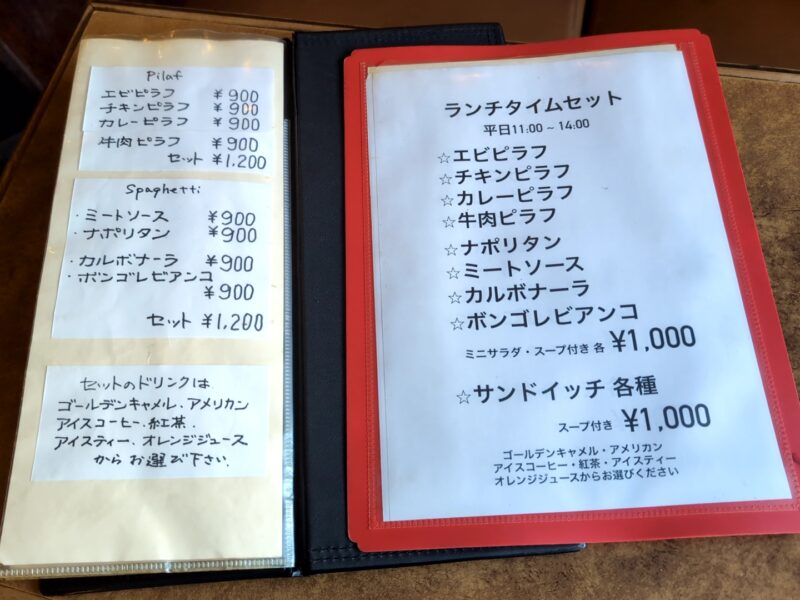 Pilaf
エビピラフ ¥900
チキンピラフ ¥900
カレーピラフ ¥900
牛肉ピラフ ¥900
セット ¥1,200
Spaghetti
・ミートソース ¥900
・ナポリタン ¥900
・カルボナーラ ¥900
・ボンゴレビアンコ
¥900
セット ¥1,200
セットのドリンクは
ゴールデンキャメル、アメリカン
アイスコーヒー、紅茶、
アイスティー、オレンジジュース
からお選び下さい。
ランチタイムセット
平日11:00 ~ 14:00
☆エビピラフ
☆チキンピラフ
☆カレーピラフ
☆牛肉ピラフ
☆ナポリタン
☆ミートソース
☆カルボナーラ
☆ボンゴレビアンコ
ミニサラダ・スープ付き 各 ¥1,000
☆サンドイッチ 各種
スープ付き ¥1,000
ゴールデンキャメル・アメリカン
アイスコーヒー・紅茶・アイスティー
オレンジジュースからお選びください